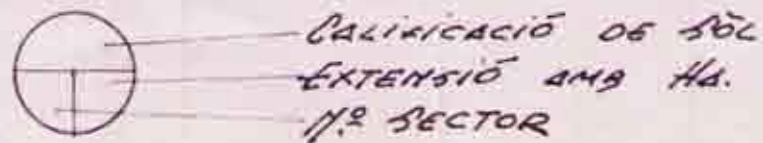 CALIFICACIÓ DE SÒL
EXTENSIÓ AMB Ha.
Nº SECTOR